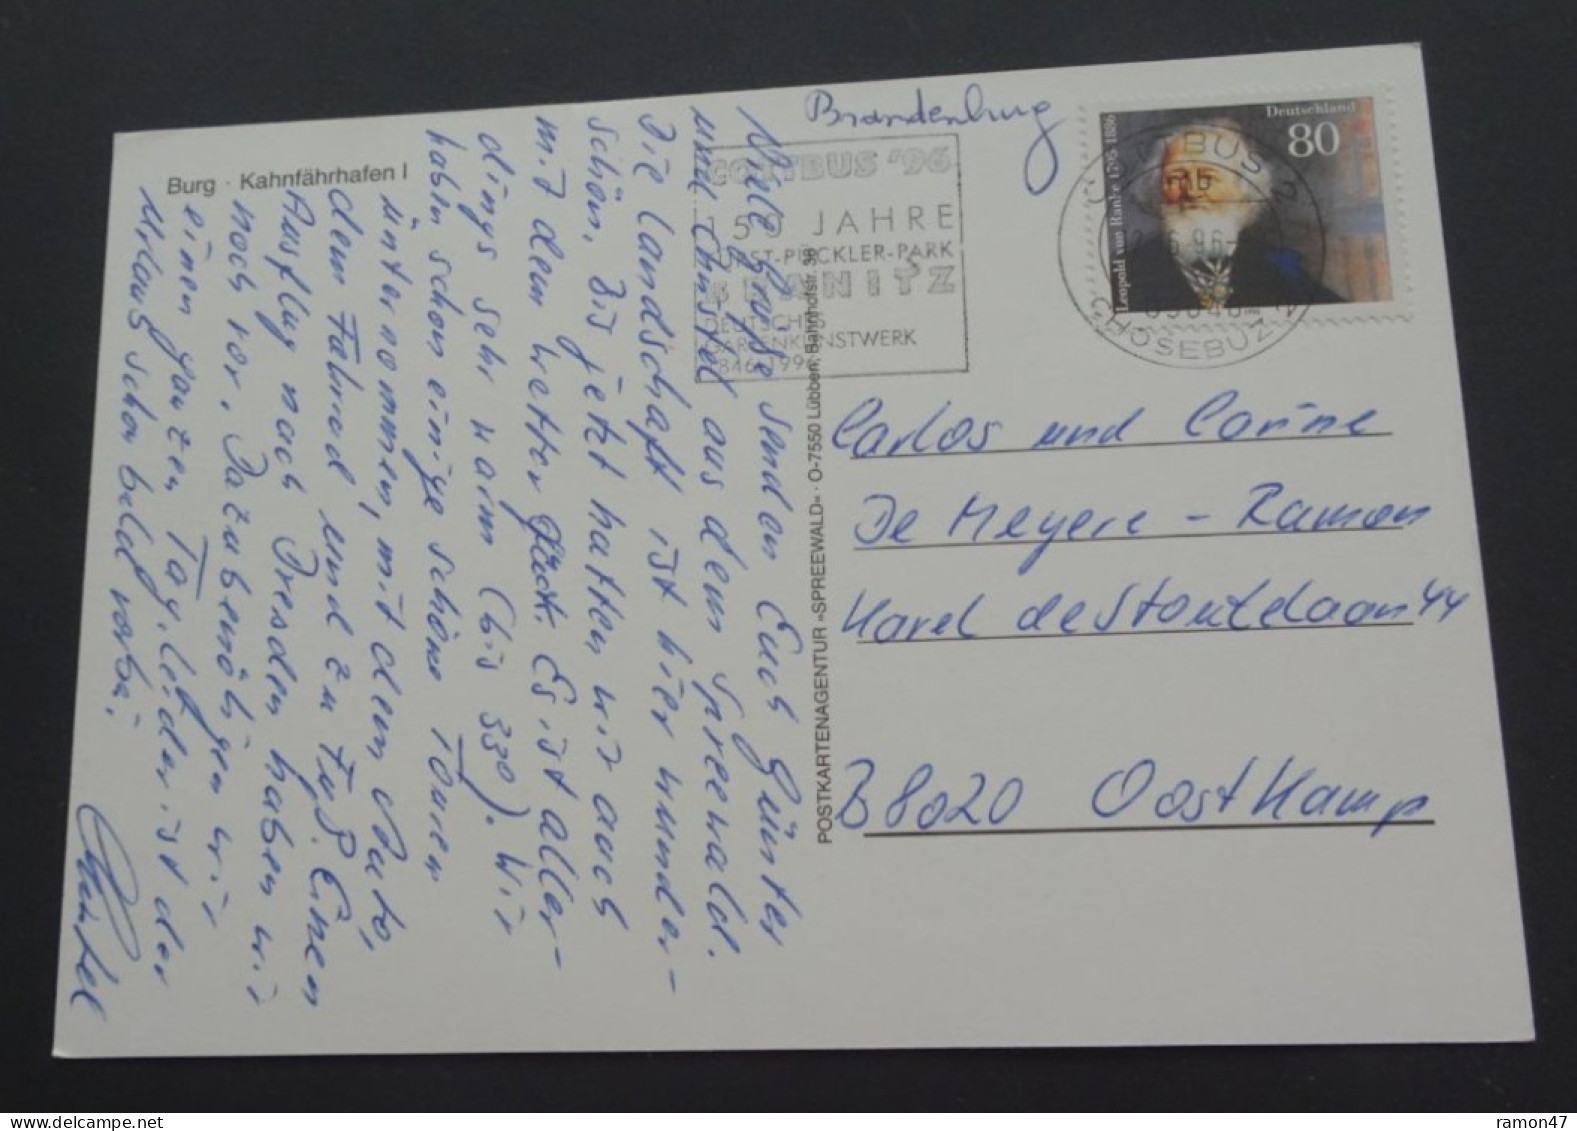 Burg · Kahnfährhafen I
Viele Grüße senden Euch Günter
und Christel aus dem Spreewald.
Die Landschaft ist hier wunder-
schön. Bis jetzt hatten wir auch
mit dem Wetter Glück. Es ist aller-
dings sehr warm (bis 33°). Wir
haben schon einige schöne Touren
unternommen, mit dem Auto,
dem Fahrrad und zu Fuß. Einen
Ausflug nach Dresden haben wir
noch vor. Dazu benötigen wir
einen ganzen Tag. Leider ist der
Urlaub schon bald vorbei.
Christel
POSTKARTENAGENTUR »SPREEWALD« · O-7550 Lübben, Bahnhofstr. 38
Brandenburg
COTTBUS '96
150 JAHRE
FÜRST-PÜCKLER-PARK
BRANITZ
DEUTSCHES
GARTENKUNSTWERK
1846-1996
Deutschland
80
Leopold von Ranke 1795-1886
COTTBUS
CHOSEBUZ
Carlos und Corine
De Meyere - Ramon
Karel de Stoutelaan 44
B8020 Oostkamp
ramon47